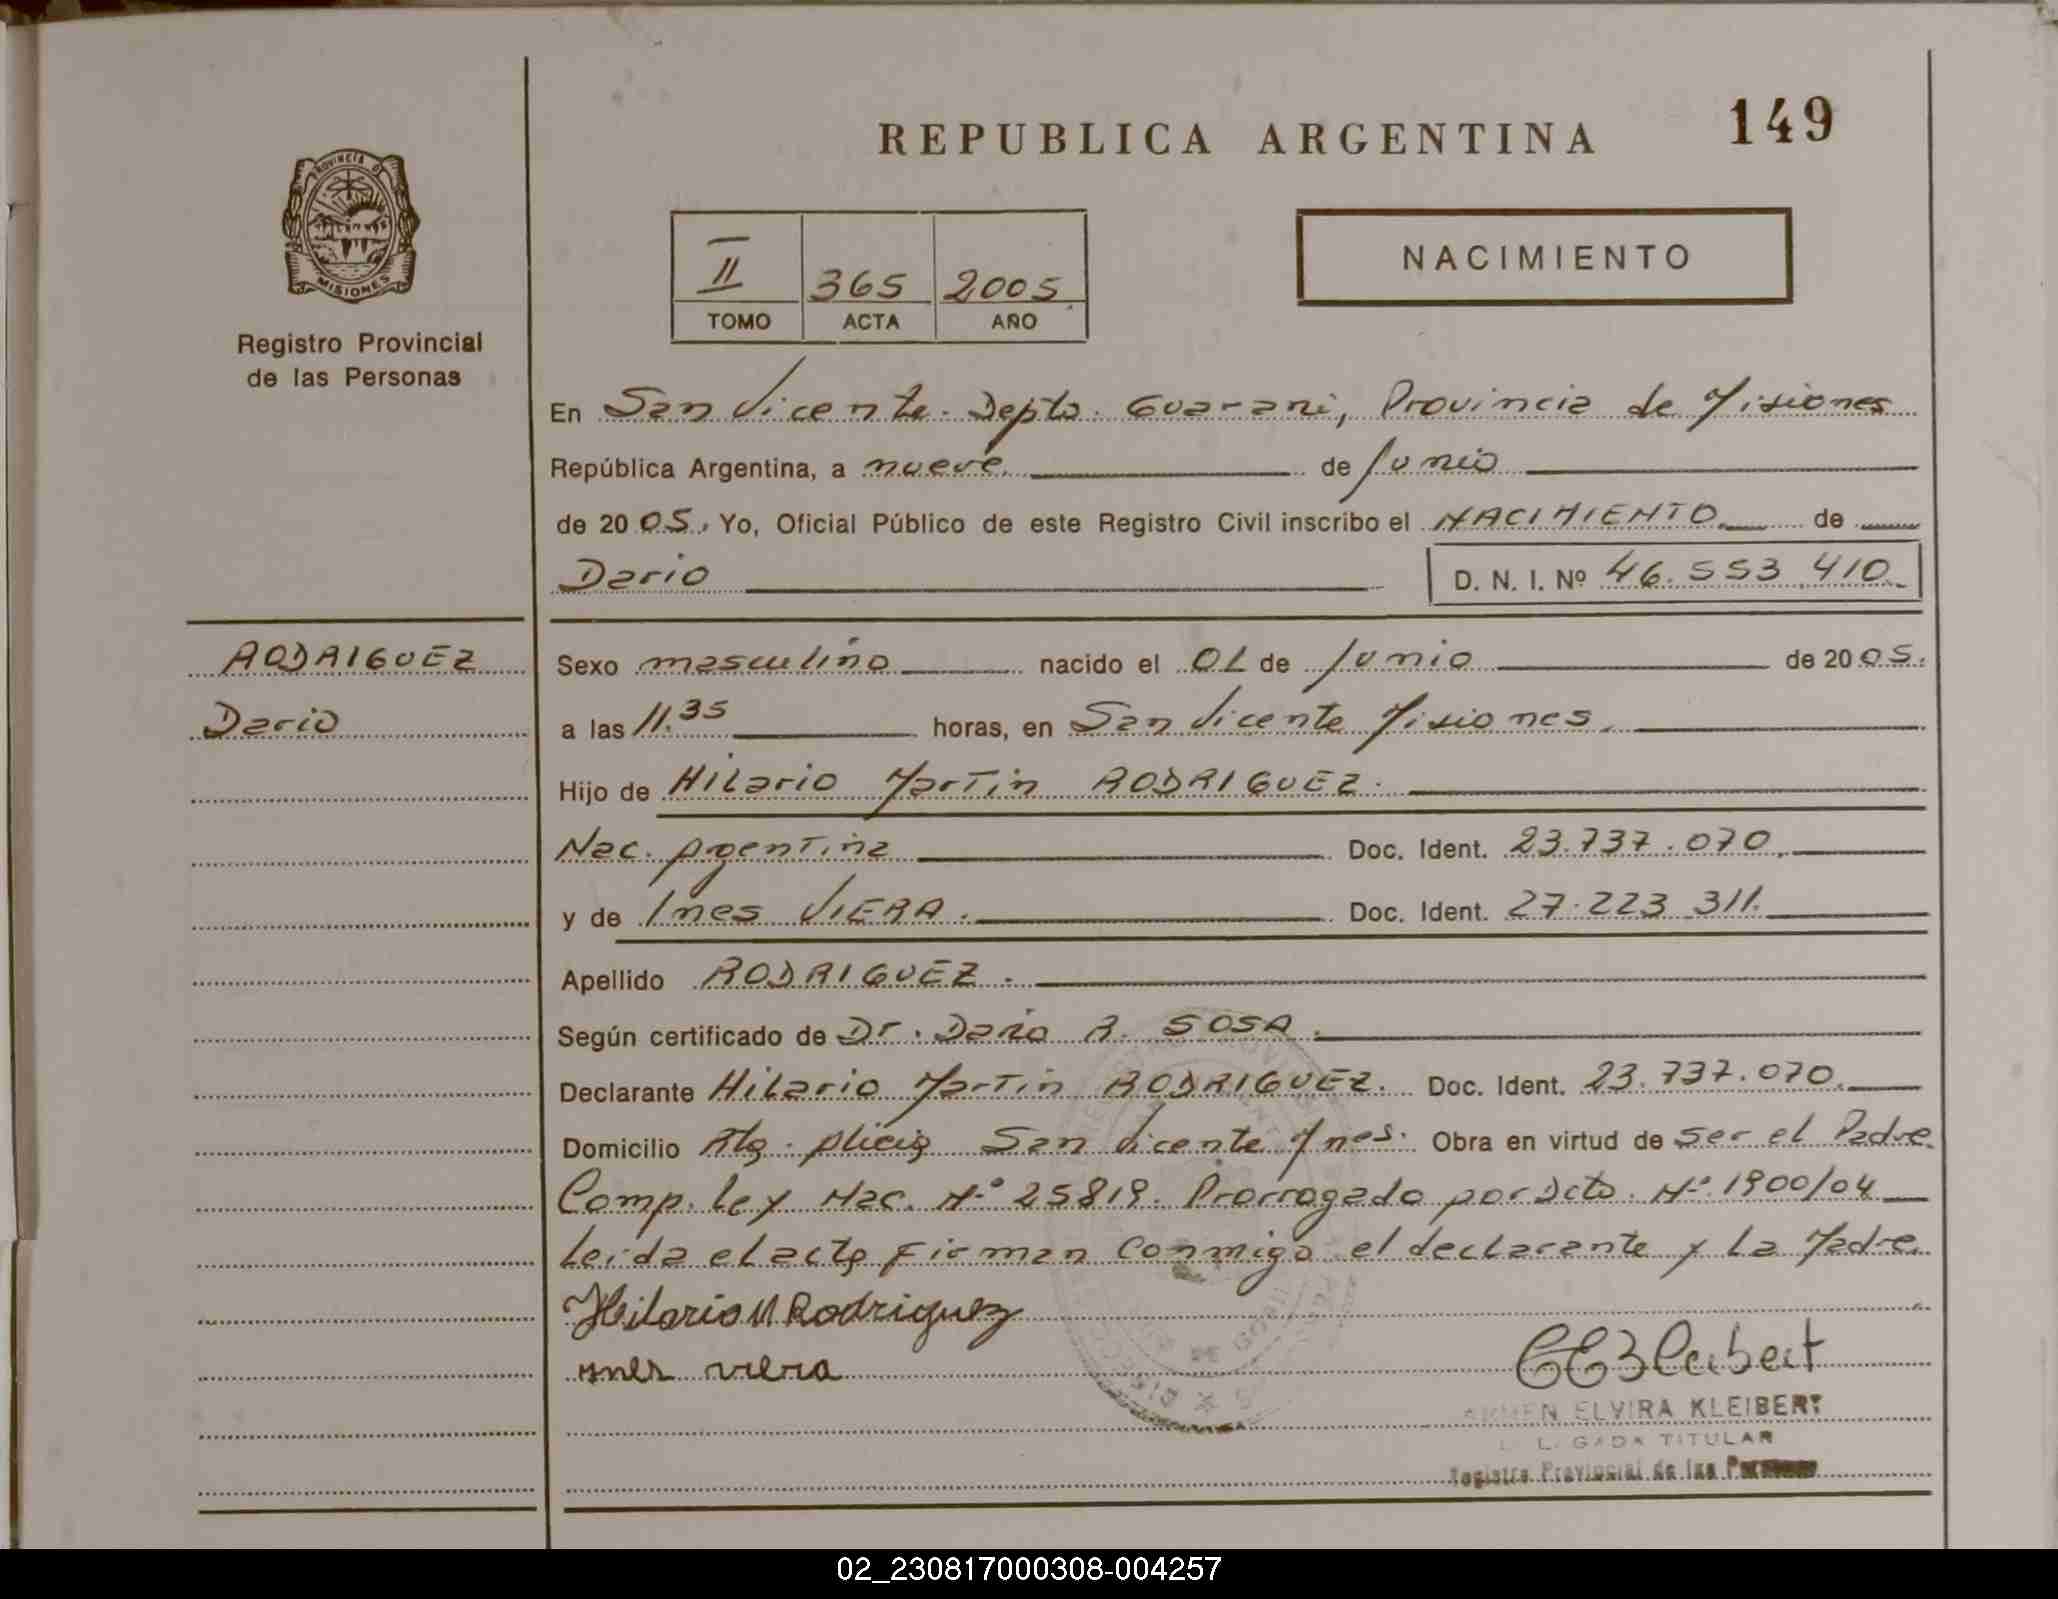 REPUBLICA ARGENTINA 149
PROVINCIA D
MISIONES
Registro Provincial
de las Personas
II 365 2005
TOMO ACTA AÑO
NACIMIENTO
En San Vicente. Depto. Guarani, Provincia de Misiones
República Argentina, a nueve de Junio
de 2005. Yo, Oficial Público de este Registro Civil inscribo el NACIMIENTO de
Dario D. N. I. Nº 46.553.410
RODRIGUEZ
Dario
Sexo masculino nacido el 01 de Junio de 2005.
a las 11.35 horas, en San Vicente Misiones.
Hijo de Hilario Martin RODRIGUEZ.
Nac. Argentina Doc. Ident. 23.737.070
y de Ines VIERA. Doc. Ident. 27.223.311.
Apellido RODRIGUEZ.
Según certificado de Dr. Dario R. SOSA.
Declarante Hilario Martin RODRIGUEZ. Doc. Ident. 23.737.070.
Domicilio San Vicente Mnes. Obra en virtud de ser el Padre.
Comp. Ley Nac. Nº 25819. Prorrogado por Dcto. Nº 1900/04
Leida el acta firman conmigo el declarante y La Madre.
Hilario M Rodriguez
ines viera
ELVIRA KLEIBERT
TITULAR
Registro Provincial de las
02_230817000308-004257